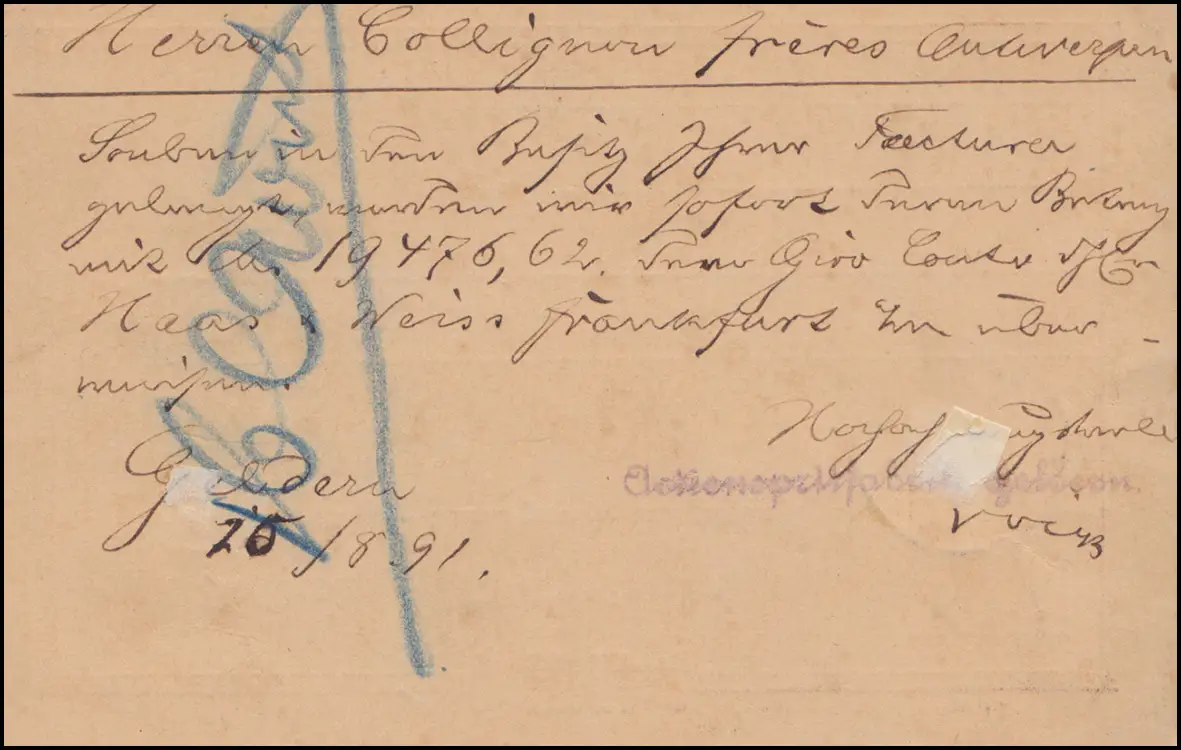 Herren Collignon frères Antwerpen
Soeben in den Besitz Ihrer Factura
gelangt, werden wir sofort deren Betrag
mit M. 19 476,62. dem Giro Conto H
Haas & Weiss Frankfurt zu über-
weisen.
Hochachtungsvoll
Geldern
Actienspritfabrik Geldern
25/8 91.